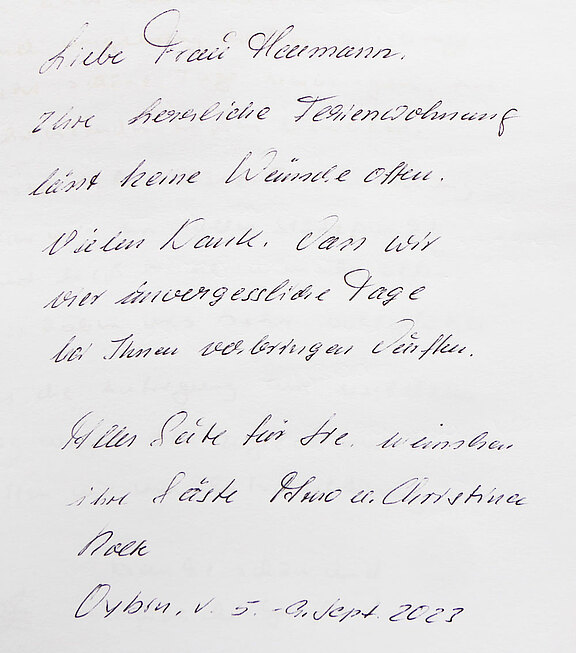 Liebe Frau Haumann.
Ihre herrliche Ferienwohnung
lässt keine Wünsche offen.
Vielen Dank, dass wir
vier unvergessliche Tage
bei Ihnen verbringen durften.
Alles Gute für Sie. wünschen
ihre Gäste u. Christina
Oybin, v. 5. - Sept. 2023